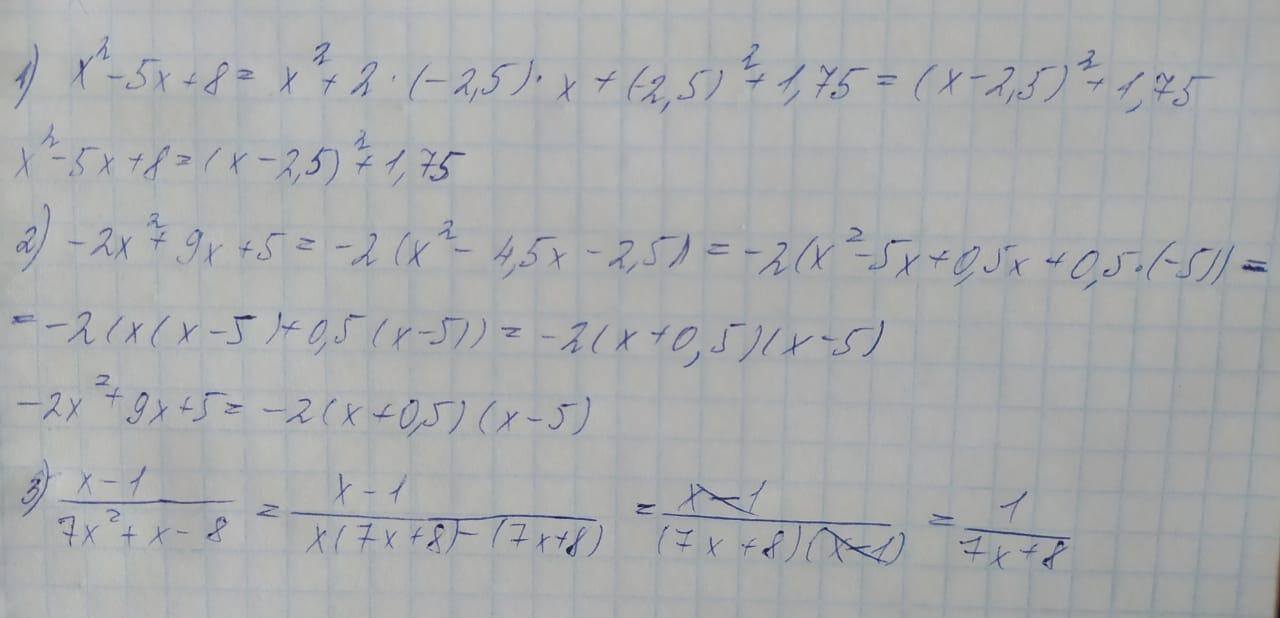 1) x² - 5x + 8 = x² + 2 · (-2,5) · x + (-2,5)² + 1,75 = (x - 2,5)² + 1,75
x² - 5x + 8 = (x - 2,5)² + 1,75
2) -2x² + 9x + 5 = -2(x² - 4,5x - 2,5) = -2(x² - 5x + 0,5x + 0,5·(-5)) =
= -2(x(x - 5) + 0,5(x - 5)) = -2(x + 0,5)(x - 5)
-2x² + 9x + 5 = -2(x + 0,5)(x - 5)
3) (x - 1)/(7x² + x - 8) = (x - 1)/(x(7x + 8) - (7x + 8)) = (x - 1)/((7x + 8)(x - 1)) = 1/(7x + 8)